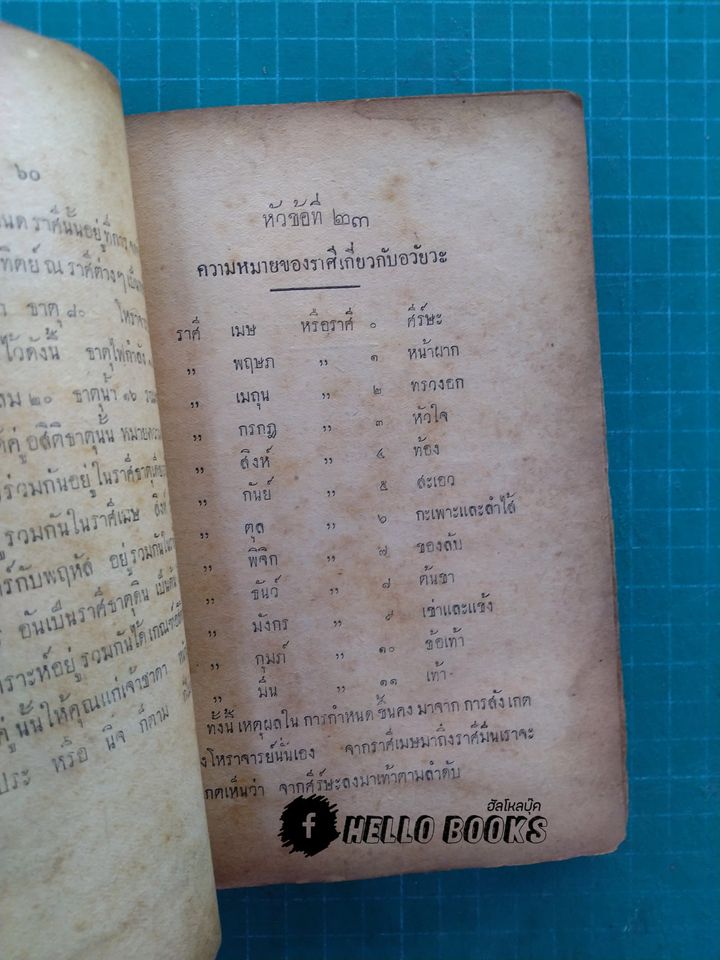 ๖๐
ราศีนั้นอยู่
ณ ราศีต่างๆ
ธาตุ ๘๐ โหราจาร
ไว้ดังนี้ ธาตุไฟกำลัง
ลม ๒๐ ธาตุน้ำ ๑๖
คู่ อสีติธาตุนั้น หมายความ
ร่วมกันอยู่ในราศีธาตุ
รวมกันในราศีเมษ สิงห์
กับพฤหัส อยู่รวมกันใน
อันเป็นราศีธาตุดิน เป็นต้น
อยู่รวมกันได้เกณฑ์
คู่ นั้นให้คุณแก่เจ้าชาตา
ประ หรือ นิจ ก็ตาม
หัวข้อที่ ๒๓
ความหมายของราศีเกี่ยวกับอวัยวะ
ราศี เมษ หรือราศี ๐ ศีร์ษะ
,, พฤษภ ,, ๑ หน้าผาก
,, เมถุน ,, ๒ ทรวงอก
,, กรกฎ ,, ๓ หัวใจ
,, สิงห์ ,, ๔ ท้อง
,, กันย์ ,, ๕ สะเอว
,, ตุล ,, ๖ กะเพาะและลำไส้
,, พิจิก ,, ๗ ของลับ
,, ธันว์ ,, ๘ ต้นขา
,, มังกร ,, ๙ เข่าและแข้ง
,, กุมภ์ ,, ๑๐ ข้อเท้า
,, มีน ,, ๑๑ เท้า
ทั้งนี้ เหตุผลใน การกำหนด ขึ้นคง มาจาก การสังเกต
โหราจารย์นั่นเอง จากราศีเมษมาถึงราศีมีนเราจะ
เกตเห็นว่า จากศีร์ษะลงมาเท้าตามลำดับ
ฮัลโหลบุ๊ค
f HELLO BOOKS